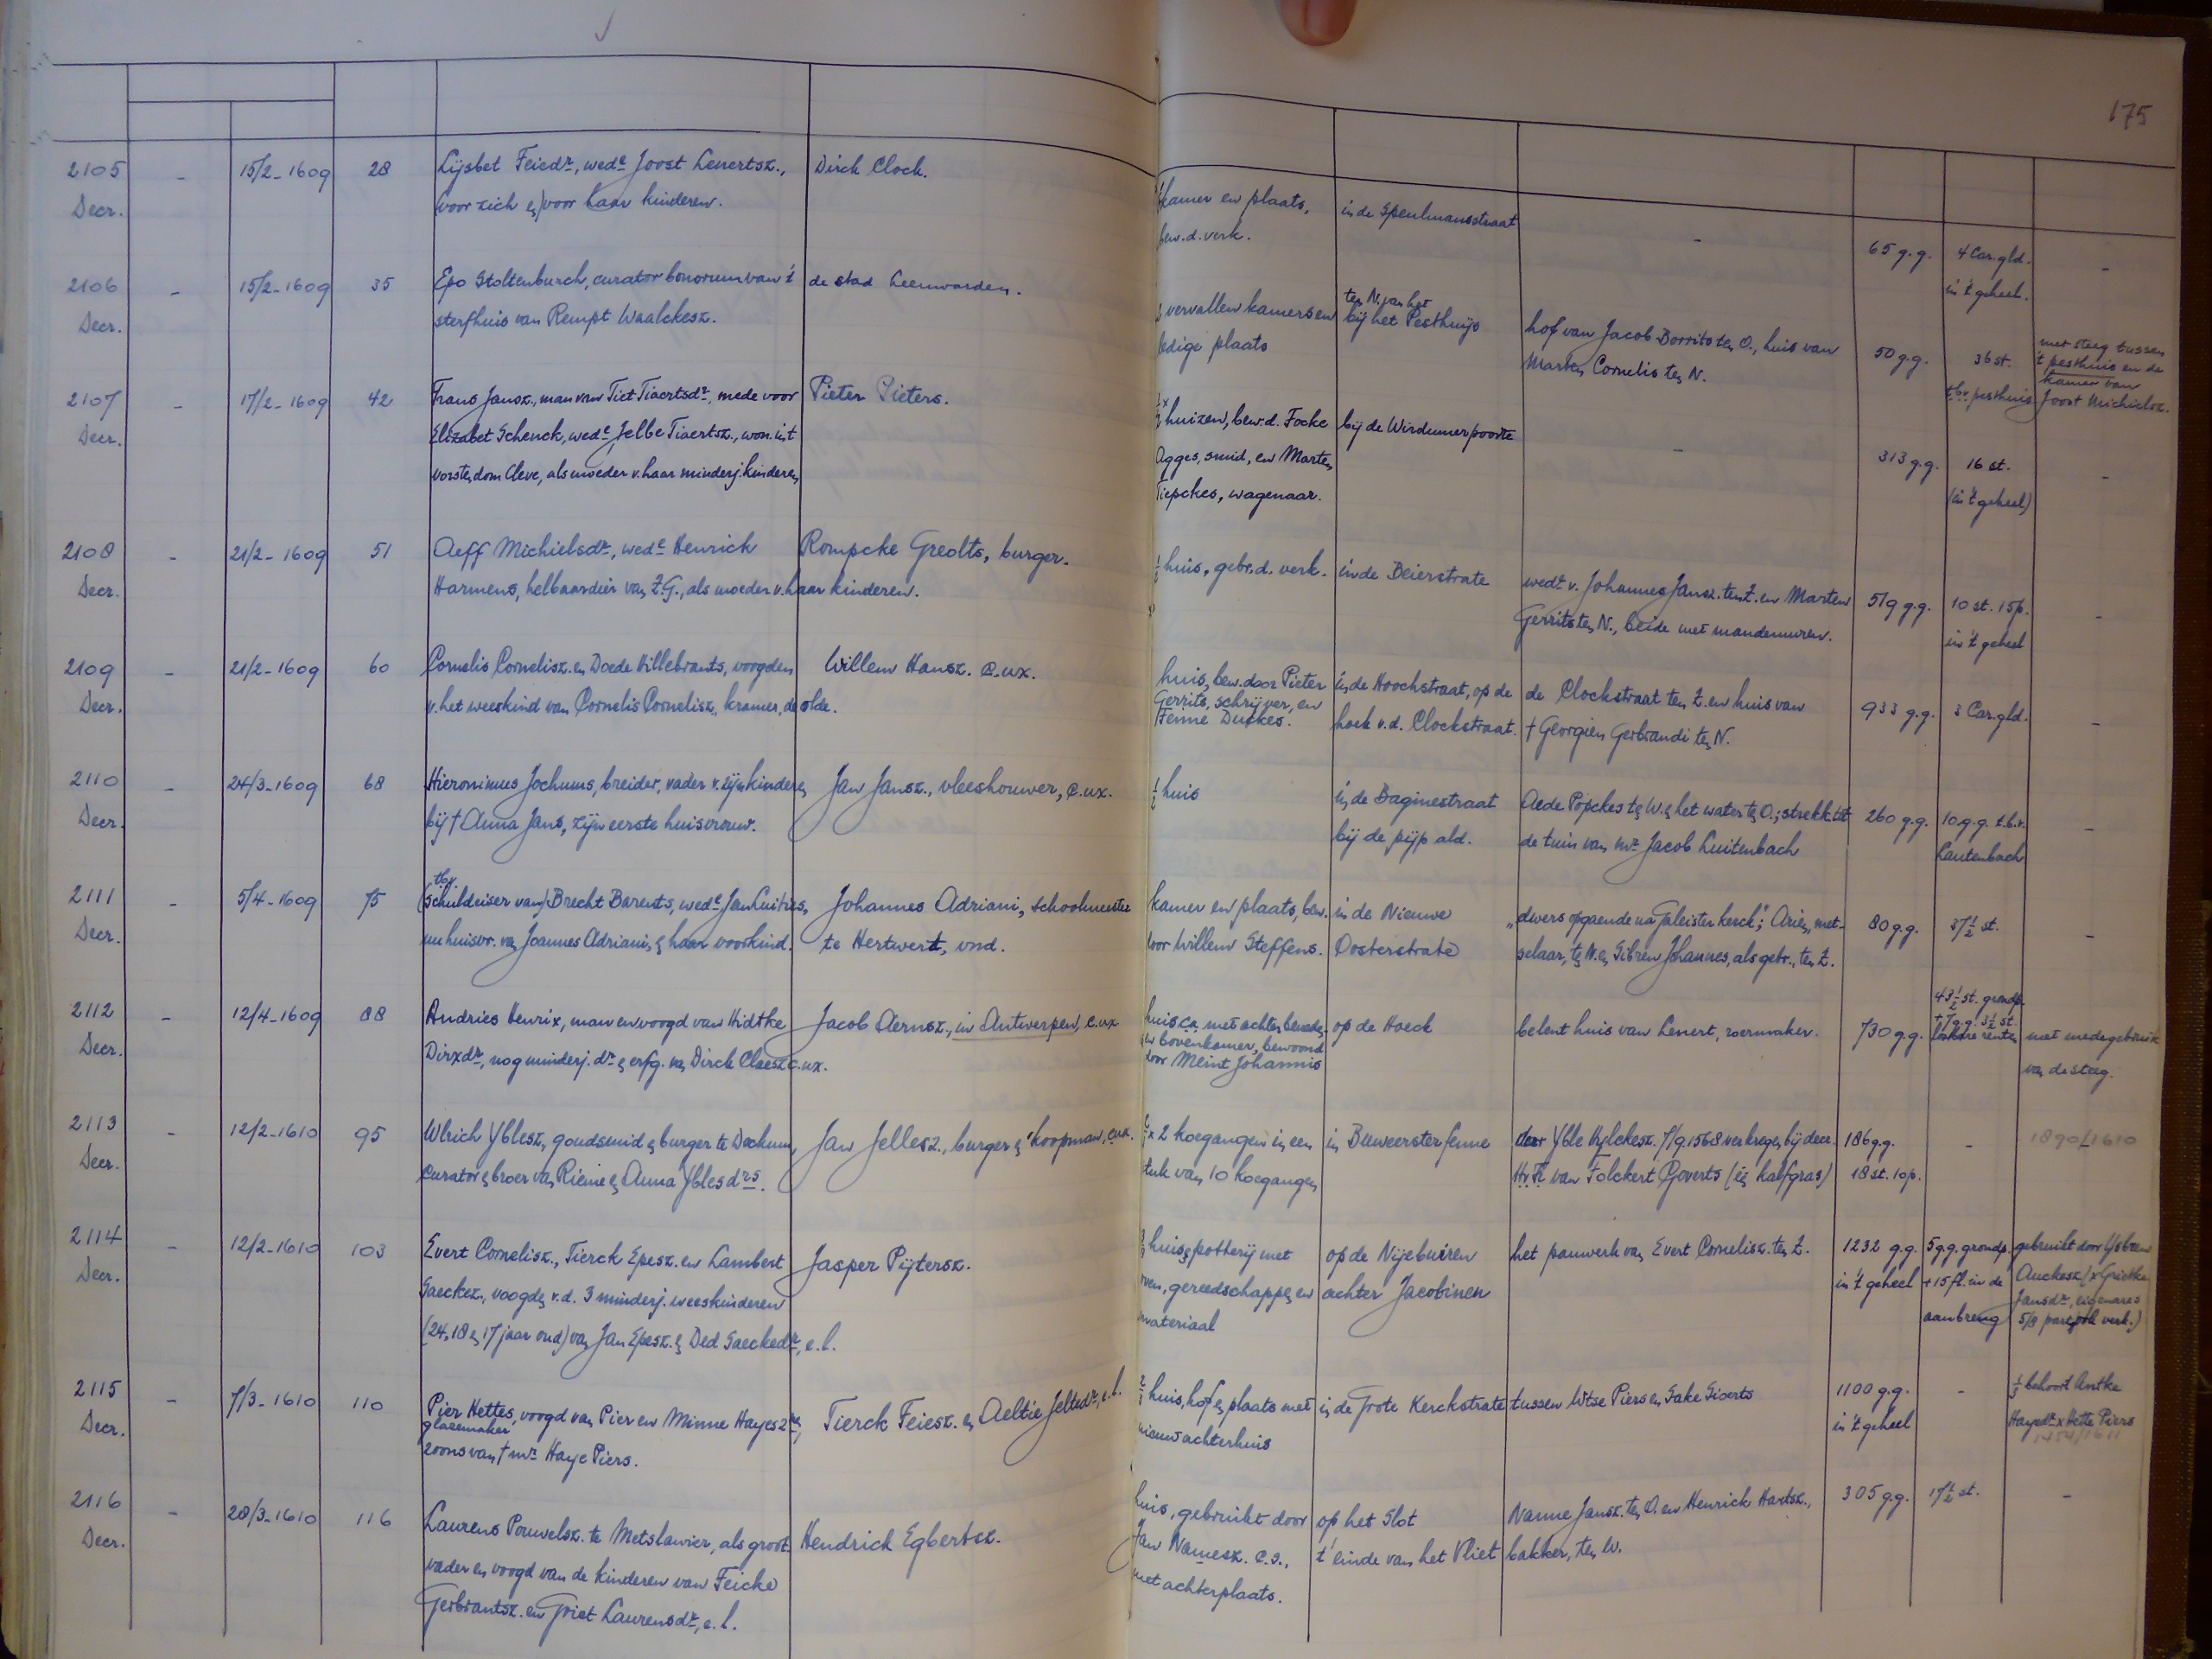 175
2105 - 15/2-1609 28 Lijsbet Feiedr., wede Joost Lenertsz., Dirck Clock. kamer en plaats, in de Speulmansstraat - 65 g.g. 4 Car.gld. -
Decr. (voor zich en) voor haar kinderen. bew. d. verk. in 't geheel.
2106 - 15/2-1609 35 Epo Stoltenburch, curator bonorum van 't de stad Leeuwarden. vervallen kamers en ten N. van het hof van Jacob Dorrits ten O., huis van 50 g.g. 36 st. met steeg tussen
Decr. sterfhuis van Rempt Waalckesz. ledige plaats bij het Pesthuijs Marten Cornelis ten N. t.b.v. pesthuis 't pesthuis en de
kamer van
Joost Michielsz.
2107 - 17/2-1609 42 Frans Jansz., man van Tiet Tiaertsdr., mede voor Pieter Pieters. huizen, bew. d. Focke bij de Wirdumerpoorte - 313 g.g. 16 st. -
Decr. Elizabet Schenck, wede Jelbe Tiaertsz., won. in 't Agges, smid, en Marten (in 't geheel)
vorstendom Cleve, als moeder v. haar minderj. kinderen Tiepckes, wagenaar.
2108 - 21/2-1609 51 Aeff Michielsdr., wede Henrick Rompcke Greolts, burger. ½ huis, gebr. d. verk. in de Beierstrate wedr. v. Johannes Jansz. ten Z. en Marten 519 g.g. 10 st. 15 p. -
Decr. Harmens, helbaardier van Z.G., als moeder v. haar kinderen. Gerrits ten N., beide met mandemuren. in 't geheel
2109 - 21/2-1609 60 Cornelis Cornelisz. en Doede Hillebrants, voogden Willem Hansz. c.ux. huis, bew. door Pieter in de Hoochstraat, op de de Clockstraat ten Z. en huis van 933 g.g. 3 Car.gld. -
Decr. v. het weeskind van Cornelis Cornelisz., kramer, de olde. Gerrits, schrijver, en hoek v.d. Clockstraat. † Georgien Gerbrandi ten N.
Fenne Duckes.
2110 - 24/3-1609 68 Hieronimus Jochums, breider, vader v. zijn kinderen Jan Jansz., vleeshouwer, c.ux. ½ huis in de Baginestraat Aede Popckes ten W. en het water ten O.; strekk. tot 260 g.g. 10 g.g. t.b.v. -
Decr. bij † Anna Jans, zijn eerste huisvrouw. bij de pijp ald. de tuin van mr. Jacob Luitenbach Lautenbach
2111 - 5/4-1609 75 tbv. (schuldeiser van) Brecht Barents, wede Jan Luities, Johannes Adriani, schoolmeester kamer en plaats, bew. in de Nieuwe "dwers opgaende na Galeister kerck"; Arien, met- 80 g.g. 37½ st. -
Decr. nu huisvr. van Joannes Adriani, en haar voorkind. te Hertwert, vnd. door Willem Steffens. Oosterstrate selaar, ten N. en Sibren Johannes, als gebr., ten Z.
2112 - 12/4-1609 88 Andries Henrix, man en voogd van Hidtke Jacob Aernsz., in Antwerpen, c.ux. huis c.a. met achter, beneden op de Hoeck belent huis van Lenert, roermaker. 730 g.g. 43½ st. grondp.
Decr. Dirxdr., nog minderj. dr. en erfg. van Dirck Claesz c.ux. en bovenkamer, bewoond + 7 g.g. 3½ st. met medegebruik
door Meint Johannis losbare renten van de steeg.
2113 - 12/2-1610 95 Wlrich Yblesz., goudsmid en burger te Dockum, Jan Jellesz., burger en koopman, c.ux. x 2 koegangen in een in Buweersterfenne door Yble Hylckesz. 7/9.1568 verkregen bij decr. 186 g.g. - 1890/1610
Decr. curator en broer van Rieme en Anna Yblesdrs. stuk van 10 koegangen Hv.Fr. van Folckert Goverts (een kalfgras) 18 st. 10 p.
2114 - 12/2-1610 103 Evert Cornelisz., Tierck Epesz. en Lambert Jasper Pijtersz. huis en potterij met op de Nijebuiren het panwerk van Evert Cornelisz. ten Z. 1232 g.g. 5 g.g. grondp. gebruikt door Ysbren
Decr. Saeckez., voogden v.d. 3 minderj. weeskinderen oven, gereedschappen en achter Jacobinen in 't geheel + 15 fl. in de Auckesz. (x Grietke
(24, 18 en 17 jaar oud) van Jan Epesz. en Ded Saeckedr., e.l. materiaal aanbreng Jansdr., eigenares
5/8 part, ook verk.)
2115 - 7/3-1610 110 Pier Hettes, voogd van Pier en Minne Hayesz., Tierck Feiesz. en Aeltie Jeltedr., e.l. huis, hof en plaats met in de Grote Kerckstrate tussen Wtse Piers en Sake Sioerts 1100 g.g. - ⅓ behoort Antke
Decr. glasemaker nieuw achterhuis in 't geheel Hayedr. x Hette Piers
zoons van † mr. Haye Piers.
2116 - 28/3-1610 116 Laurens Pouwelsz. te Metslawier, als groot- Hendrick Egbertsz. huis, gebruikt door op het Slot Nanne Jansz. ten O. en Henrick Hartsz., 305 g.g. 17½ st. -
Decr. vader en voogd van de kinderen van Feicke Jan Namesz. c.s., 't einde van het Vliet bakker, ten W.
Gerbrantsz. en Griet Laurensdr., e.l. met achterplaats.